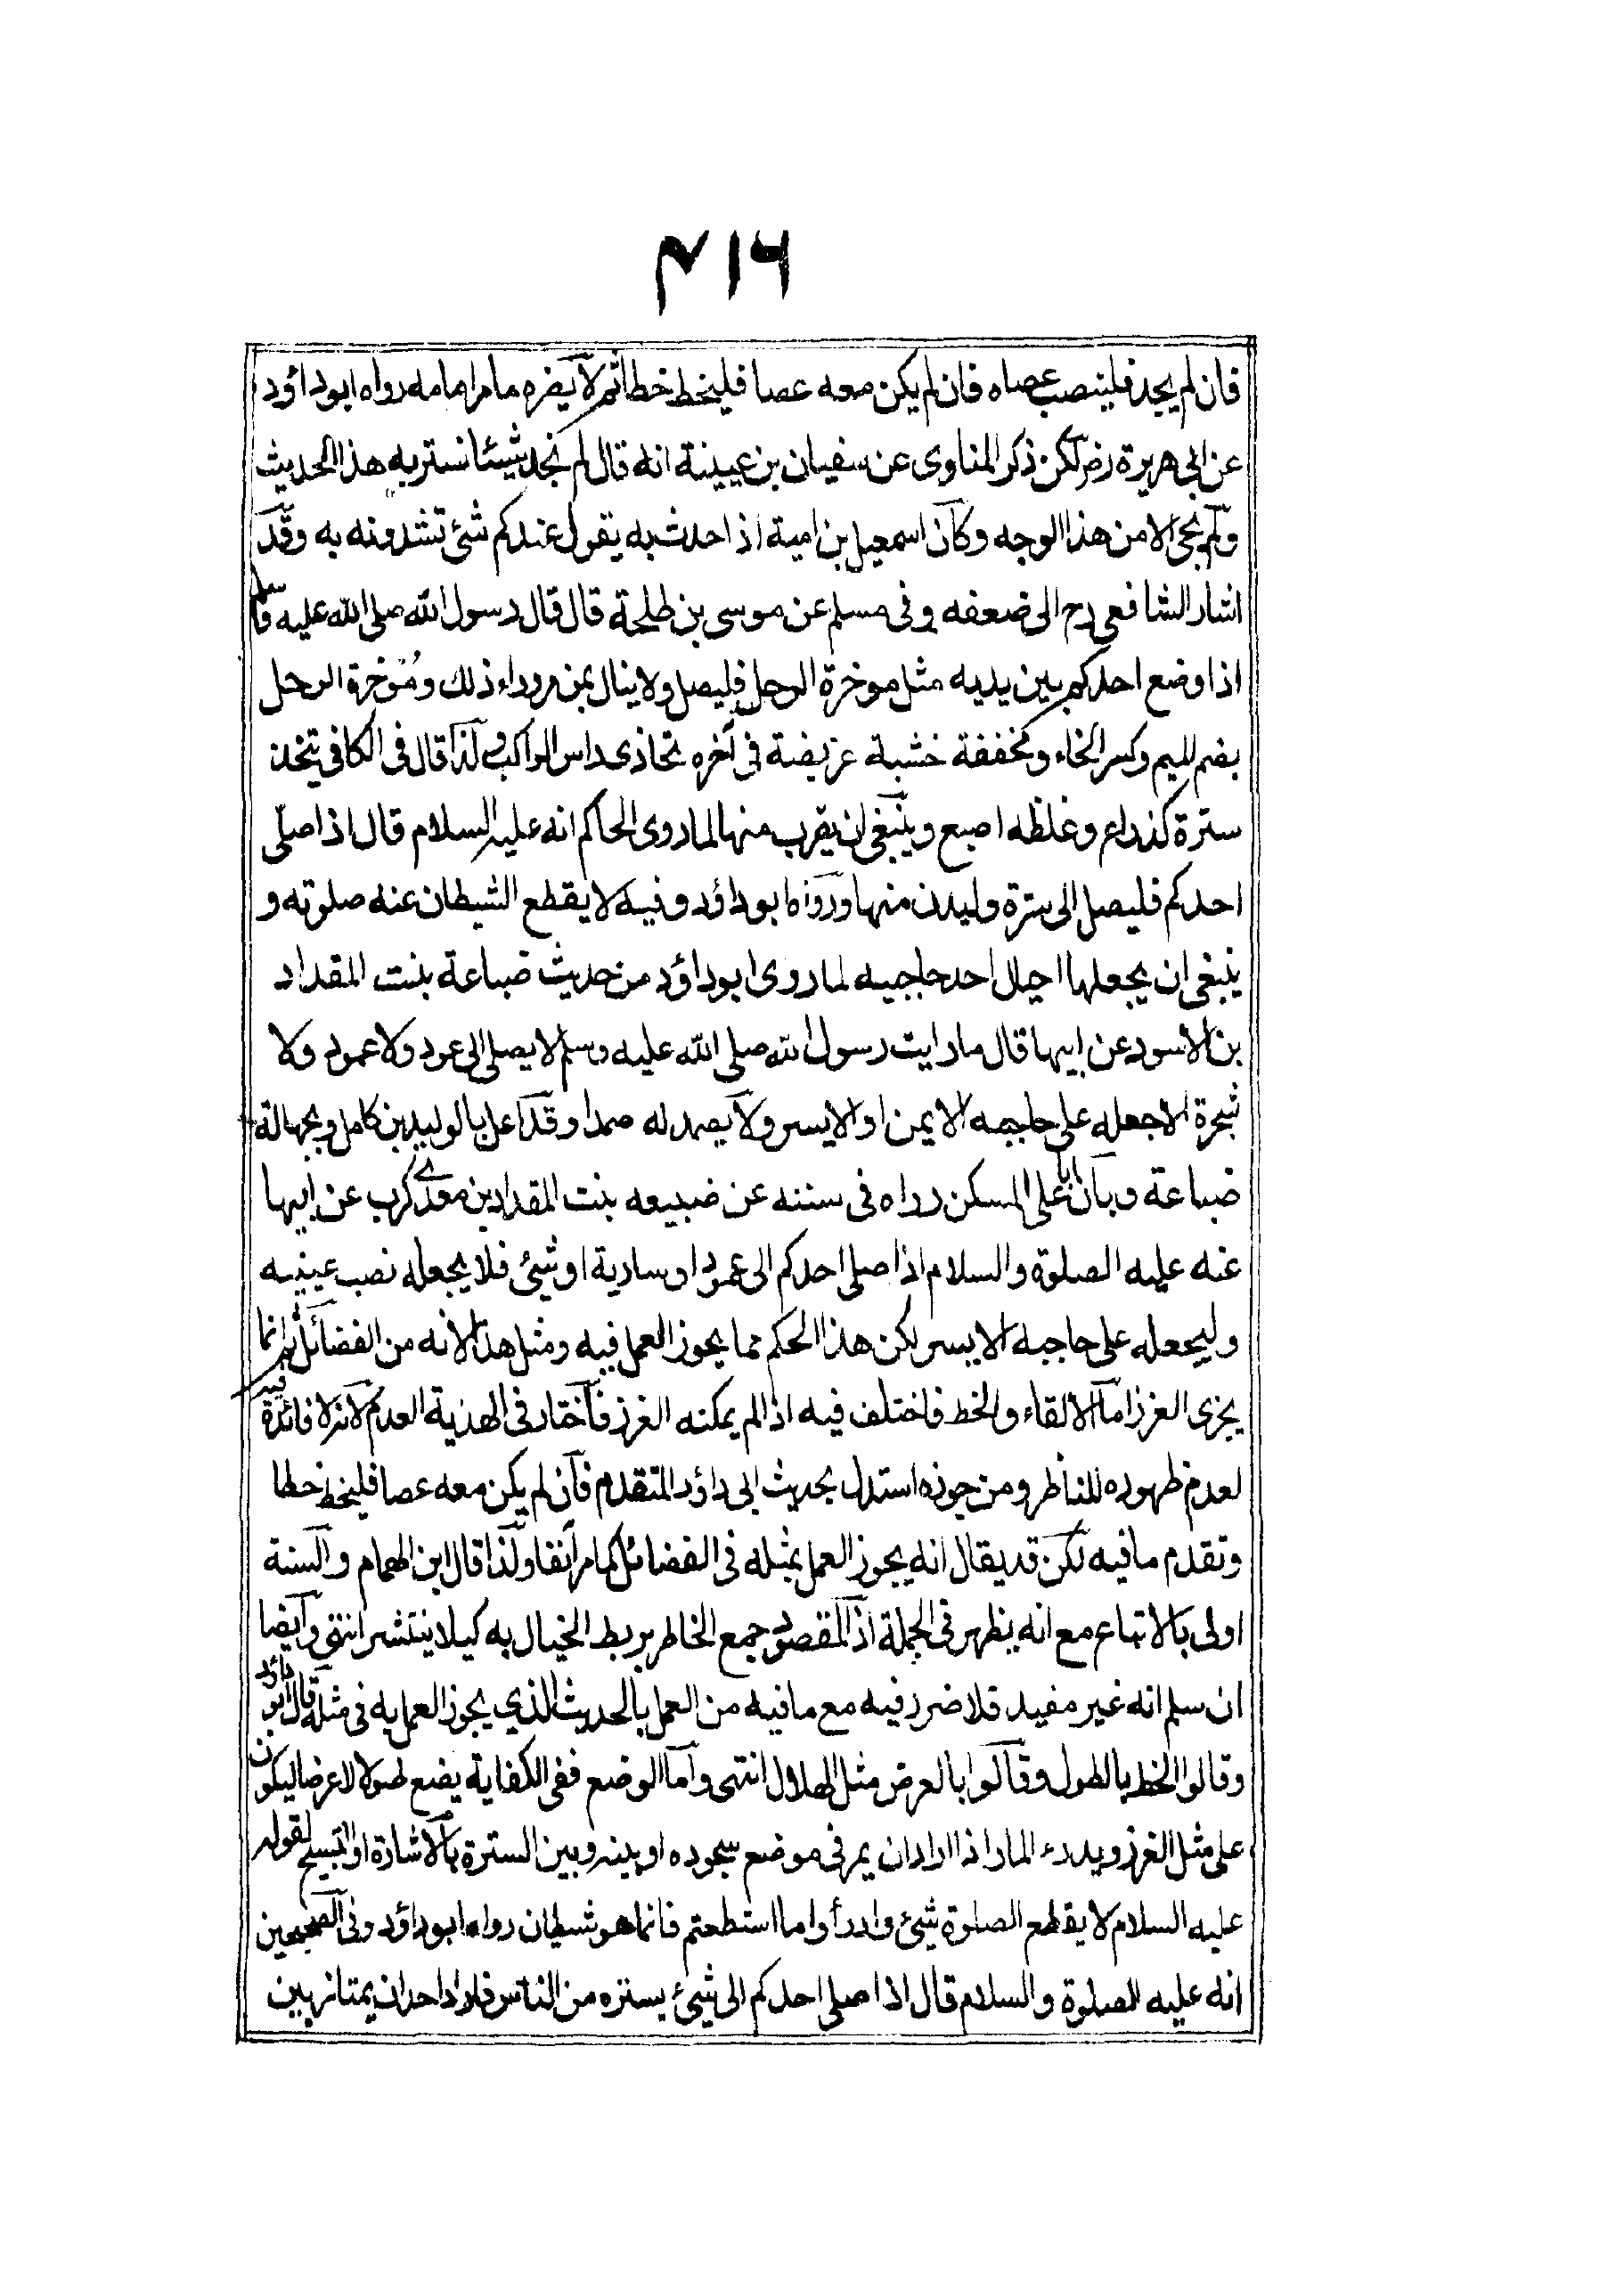 ۴۱۶
فان لم يجد فلينصب عصاه فان لم يكن معه عصا فليخط خطا ثم لا يضره ما مر امامه رواه ابو داؤد
عن ابى هريرة رض لكن ذكر المناوى عن سفيان بن عيينة انه قال لم نجد شيئا نستر به هذا الحديث
ولم يجئ الا من هذا الوجه وكان اسمعيل بن امية اذا حدث به يقول عندكم شئ تشدونه به وقد
اشار الشافعى رح الى ضعفه وفى مسلم عن موسى بن طلحة قال قال رسول الله صلى الله عليه وسلم
اذا وضع احدكم بين يديه مثل موخرة الرحل فليصل ولا ينال بمن مر وراء ذلك ومُؤخرة الرحل
بضم الميم وكسر الخاء ومخففة خشبة عريضة فى آخره تحاذى راس الراكب ولذا قال فى الكافى يتخذ
سترة كذراع وغلظه اصبع وينبغى ان يقرب منها لما روى الحاكم انه عليه السلام قال اذا صلّى
احدكم فليصل الى سترة وليدن منها ورواه ابو داؤد وفيه لا يقطع الشيطان عنه صلوته و
ينبغى ان يجعلها احيال احد حاجبيه لما روى ابو داؤد من حديث ضباعة بنت المقداد
بن الاسود عن ابيها قال ما رايت رسول الله صلى الله عليه وسلم لا يصلى الى عود ولا عمود ولا
شجرة الا جعله على حاجبه الايمن او الايسر ولا يصمد له صمدا وقد اعل بالوليد بن كامل وبجهالة
ضباعة وبان ابا على المسكن رواه فى سننه عن ضبيعه بنت المقداد بن معدى كرب عن ابيها
عنه عليه الصلوة والسلام اذا صلى احدكم الى عمود او سارية او شئ فلا يجعله نصب عينيه
وليجعله على حاجبه الايسر لكن هذا الحكم مما يجوز العمل فيه ومثل هذا لانه من الفضائل ثم انما
يجزى الغرز اما الالقاء والخط فاختلف فيه اذا لم يمكنه الغرز فاختار فى الهذية العدم لانه لا فائدة فيه
لعدم ظهوره للناظر ومن جوزه استدل بحديث ابى داؤد المتقدم فان لم يكن معه عصا فليخط خطا
وتقدم ما فيه لكن قد يقال انه يجوز العمل بمثله فى الفضائل كما مر آنفا ولذا قال ابن الهمام والسنة
اولى بالاتباع مع انه يظهر فى الجملة اذ المقصود جمع الخاطر بربط الخيال به كيلا ينتشر انتهى وايضا
ان سلم انه غير مفيد فلا ضرر فيه مع ما فيه من العمل بالحديث الذي يجوز العمل به فى مثله قال ابو داؤد
وقالوا الخط بالطول وقالوا بالعرض مثل الهلال انتهى واما الوضع ففى الكفاية يضع طولا لا عرضا ليكون
على مثل الغرز ويدرء المار اذا اراد ان يمر فى موضع سجوده او بينه وبين السترة بالاشارة او التسبيح لقوله
عليه السلام لا يقطع الصلوة شئ وادرأوا ما استطعتم فانما هو شيطان رواه ابو داؤد وفى الصحيحين
انه عليه الصلوة والسلام قال اذا صلى احدكم الى شئ يستره من الناس فاراد احد ان يمتاز بين